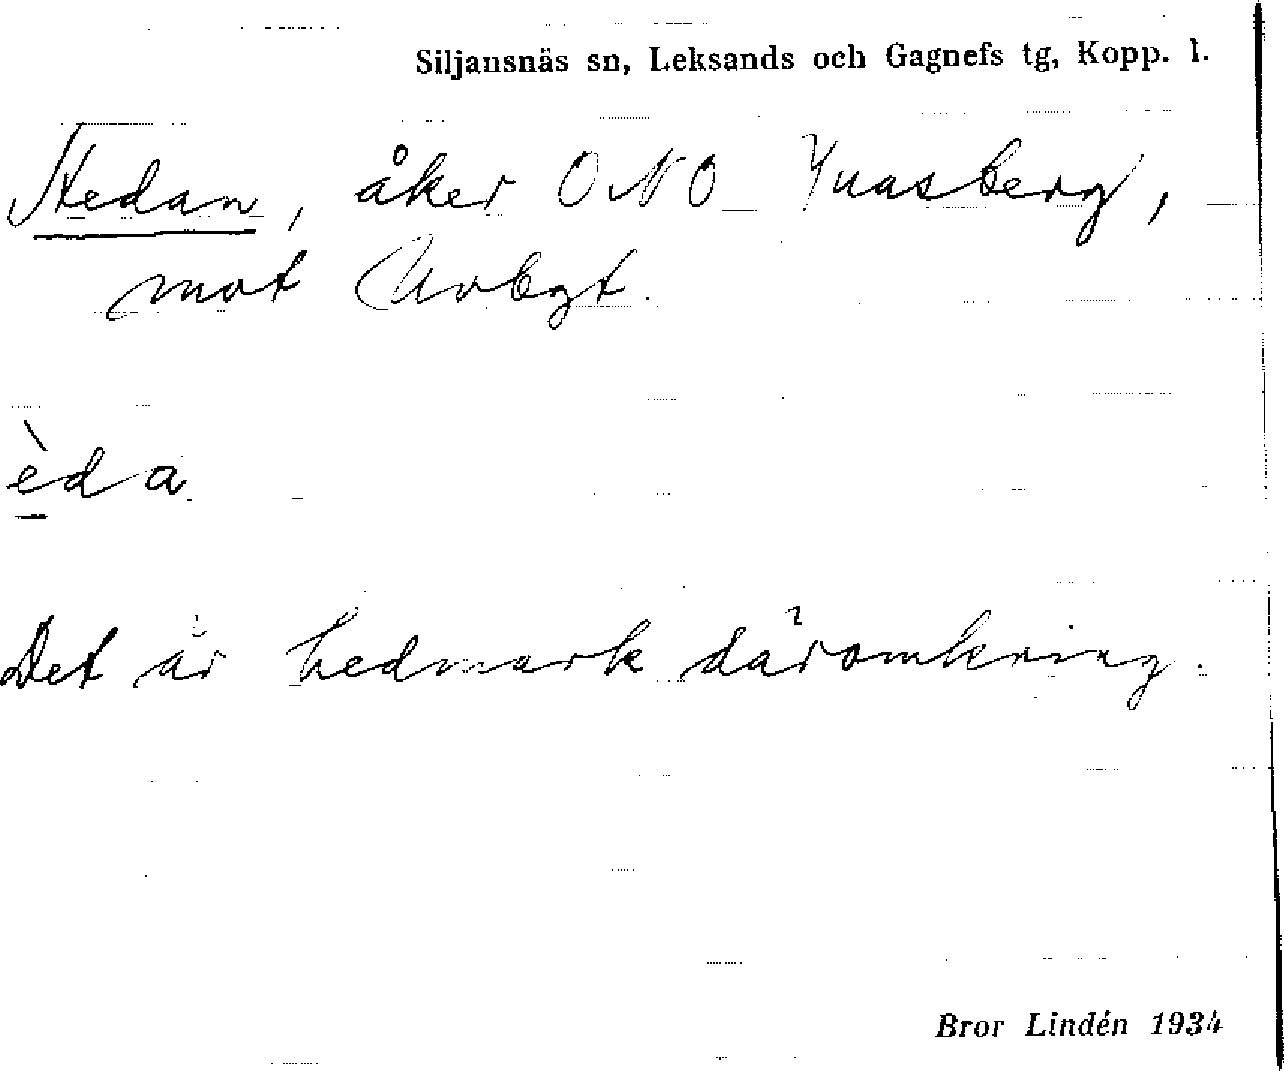 Siljansnäs sn, Leksands och Gagnefs tg, Kopp. l.
Hedan, åker ONO Ynasberg,
mot
èda
Det är hedmark däromkring.
Bror Lindén 1934